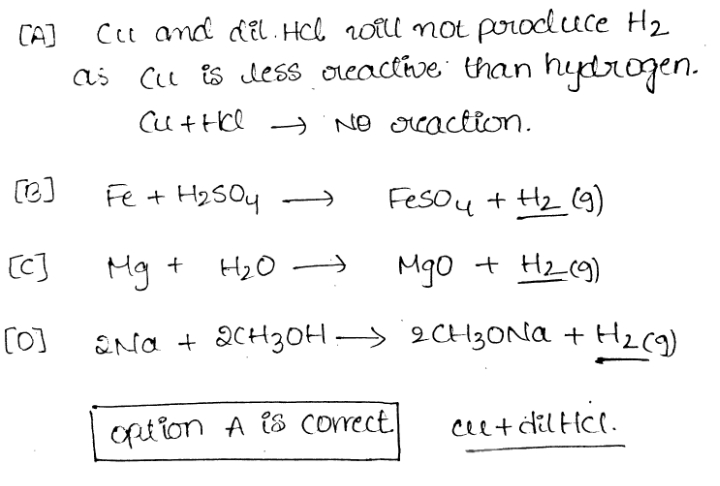 [A] Cu and dil. HCl will not produce H2
as Cu is less reactive than hydrogen.
Cu + HCl → NO reaction.
[B] Fe + H2SO4 → FeSO4 + H2 (g)
[C] Mg + H2O → MgO + H2 (g)
[D] 2Na + 2CH3OH → 2CH3ONa + H2 (g)
option A is correct. Cu + dil HCl.